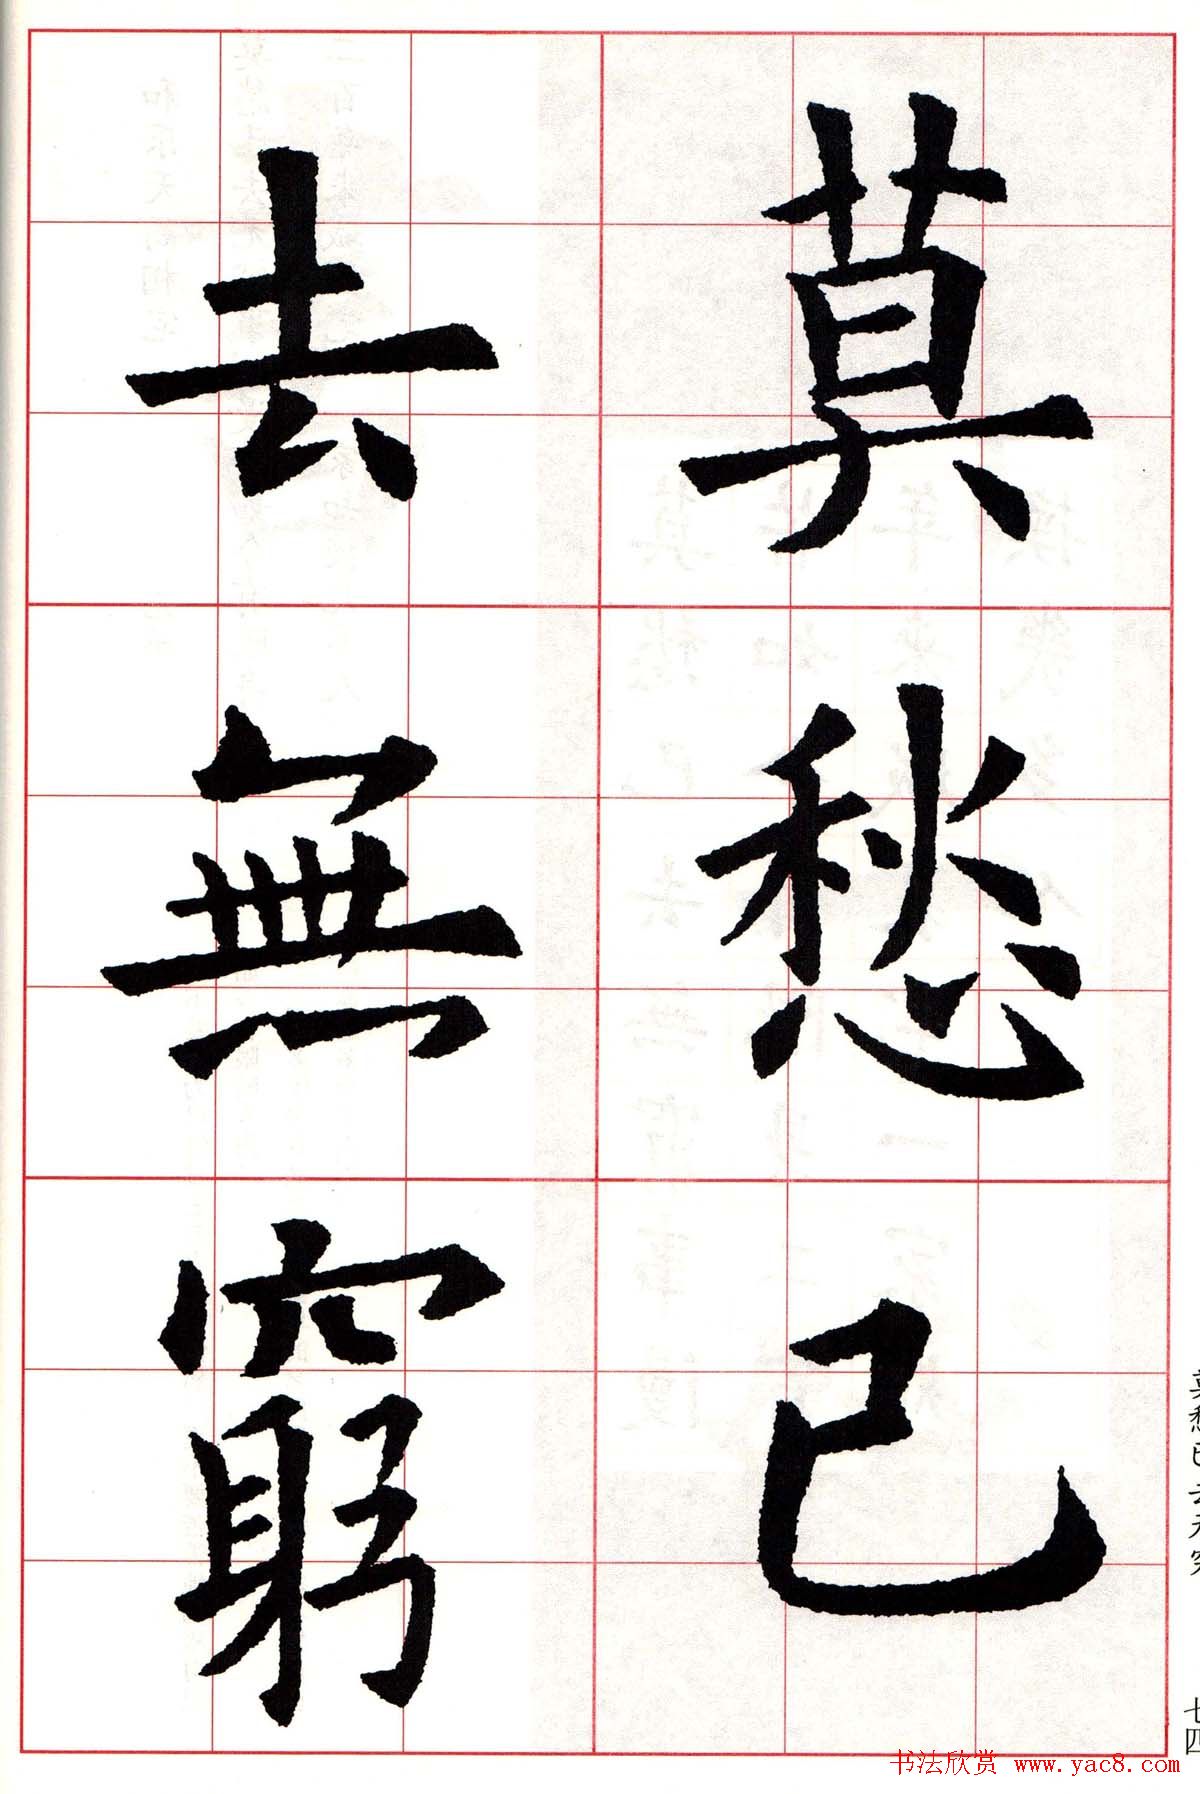 莫愁已
去無窮
莫愁已去无穷
七四
书法欣赏 www.yac8.com